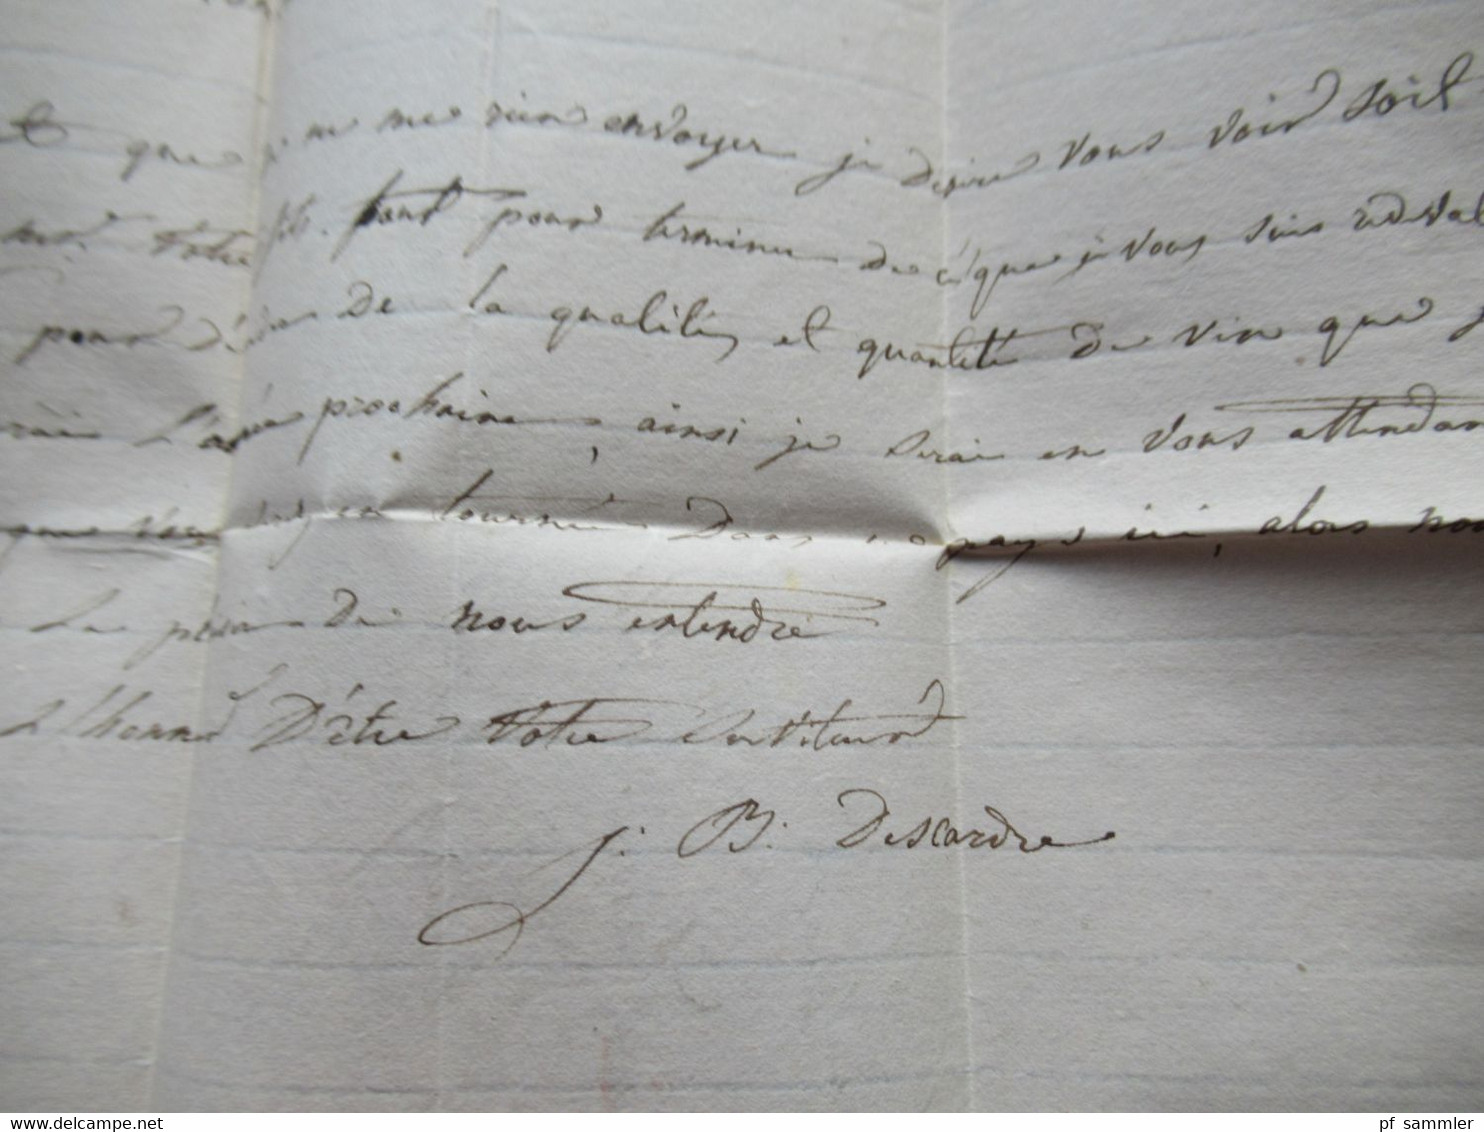 et que de ne me rien envoyer je desire vous voir soit
mr. votre fils. tant pour terminer de ce que je vous suis redeval
pour de la qualités et quantité de vin que j
rai l'anée prochaine, ainsi je serai en vous attendant
que vous en tournée dans ce pays ici, alors nou
de nous entendre
L'honneur D'être Votre serviteur
J. B. Descardre
delcampe.net
pf_sammler